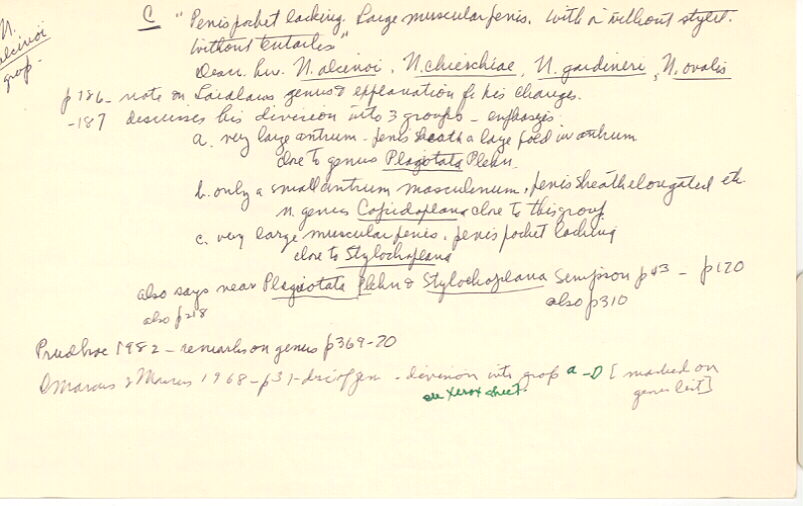 N.
alcinoi
group.
C "Penis pocket lacking. Large muscular penis. With or without stylet.
Without tentacles"
N. alcinoi, N. chierchiae, N. gardineri, N. ovalis
p186 - note on Laidlaws genus & explanation for his changes.
-187 discusses his division into 3 groups - emphasis
a. very large antrum - penis sheath a large fold in antrum
close to genus Plagiotata Plehn.
b. only a small antrum masculinum, penis sheath elongated etc
n. genus Copidoplana close to this group.
c. very large muscular penis, penis pocket lacking
close to Stylochoplana
also says near Plagiotata Plehn & Stylochoplana Stimpson p43 - p120
also p218 also p310
Prudhoe 1982 - remarks on genus p369-70
Marcus & Marcus 1968 - p31 - - division into groups a-D [marked on
see xerox sheet. genus list]